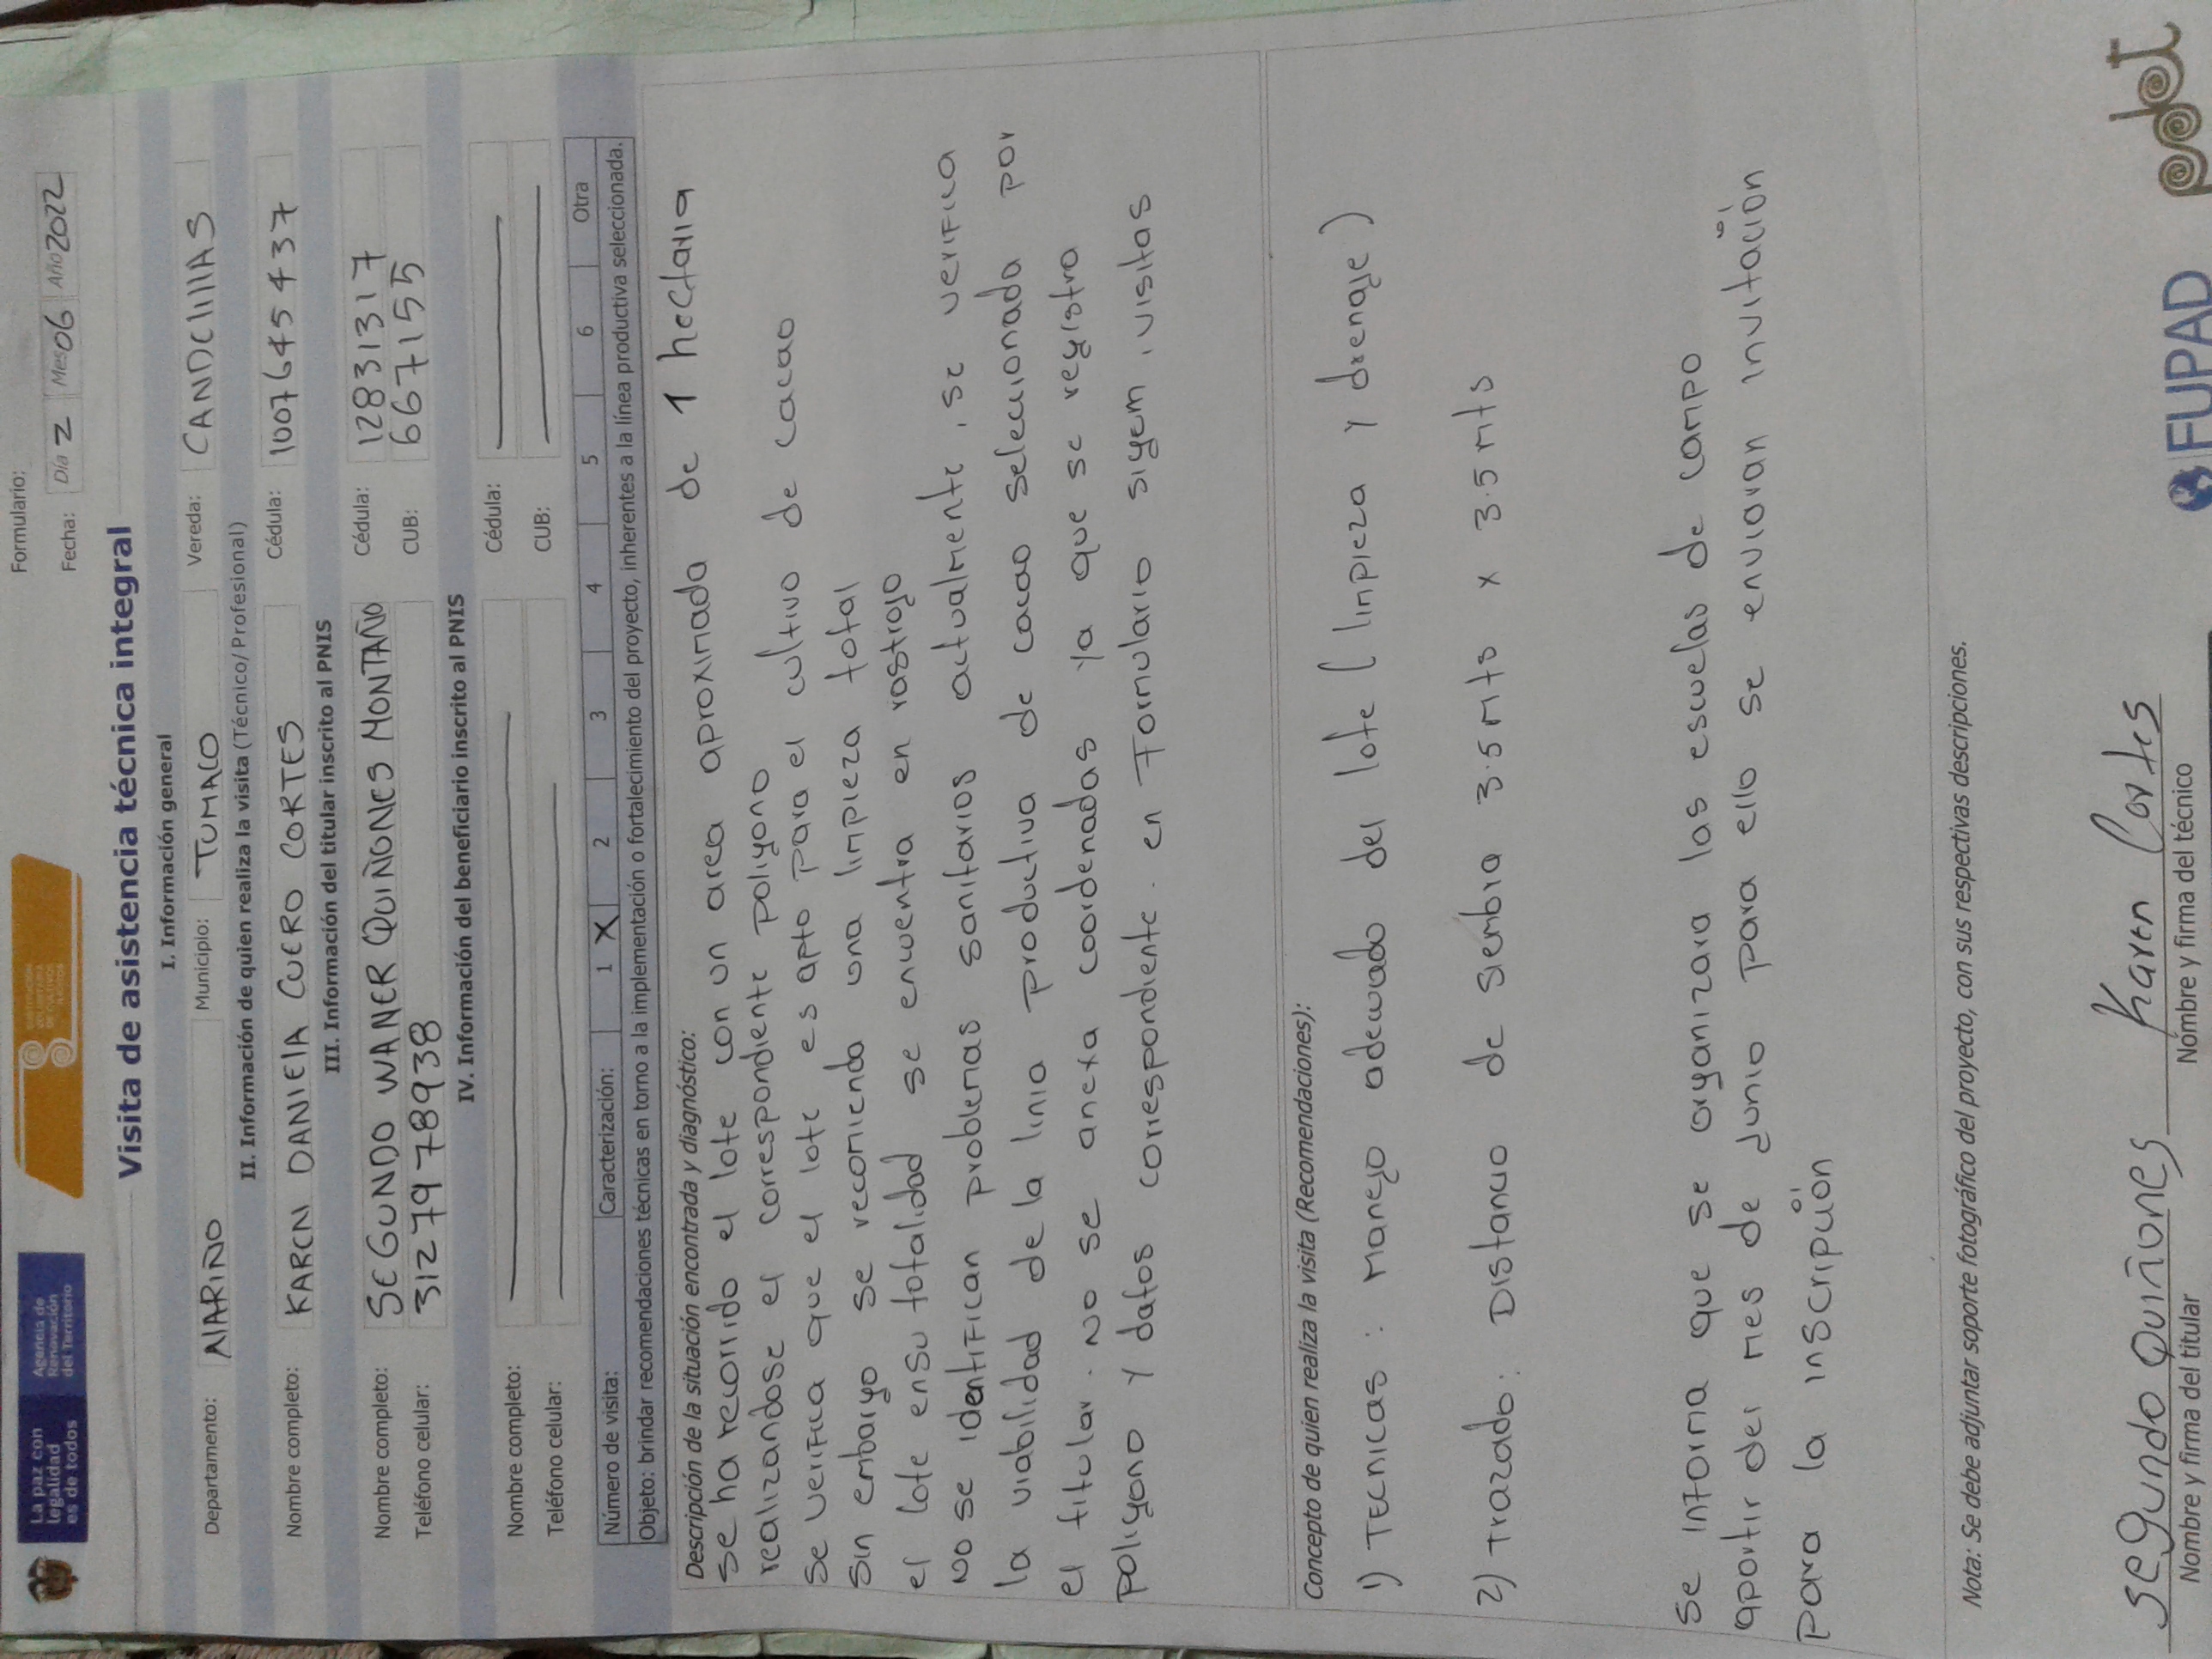 La paz con
legalidad
es de todos
Agencia de
Renovación
del Territorio
SUSTITUCIÓN
VOLUNTARIA
DE CULTIVOS
ILÍCITOS
Formulario:
Fecha: Día 2 Mes 06 Año 2022
Visita de asistencia técnica integral
I. Información general
Departamento: NARIÑO Municipio: TUMACO Vereda: CANDELILLAS
II. Información de quien realiza la visita (Técnico/Profesional)
Nombre completo: KAREN DANIELA CUERO CORTES Cédula: 1007645437
III. Información del titular inscrito al PNIS
Nombre completo: SEGUNDO WANER QUIÑONES MONTAÑO Cédula: 12831317
Teléfono celular: 3127978938 CUB: 667155
IV. Información del beneficiario inscrito al PNIS
Nombre completo: Cédula:
Teléfono celular: CUB:
Número de visita: Caracterización: 1 X 2 3 4 5 6 Otra
Objeto: brindar recomendaciones técnicas en torno a la implementación o fortalecimiento del proyecto, inherentes a la línea productiva seleccionada.
Descripción de la situación encontrada y diagnóstico:
se ha recorrido el lote con un area aproximada de 1 hectaria
realizandose el correspondiente poligono
se verifica que el lote es apto para el cultivo de cacao
sin embargo se recomienda una limpieza total
el lote ensu totalidad se encuentra en rastrojo
no se identifican problemas sanitarios actualmente, se verifica
la viabilidad de la linia productiva de cacao selecionada por
el titular. no se anexa coordenadas ya que se registra
poligono y datos correspondiente. en formulario sigem, visitas
Concepto de quien realiza la visita (Recomendaciones):
1) Tecnicas: manejo adecuado del lote ( limpieza y drenaje)
2) Trazado: Distancia de siembra 3.5 mts x 3.5 mts
se informa que se organizara las escuelas de campo
apartir del mes de Junio para ello se enviaran invitación
para la inscripción
Nota: Se debe adjuntar soporte fotográfico del proyecto, con sus respectivas descripciones.
Segundo Quiñones Karen Cortes
Nombre y firma del titular Nombre y firma del técnico
FUPAD pdet